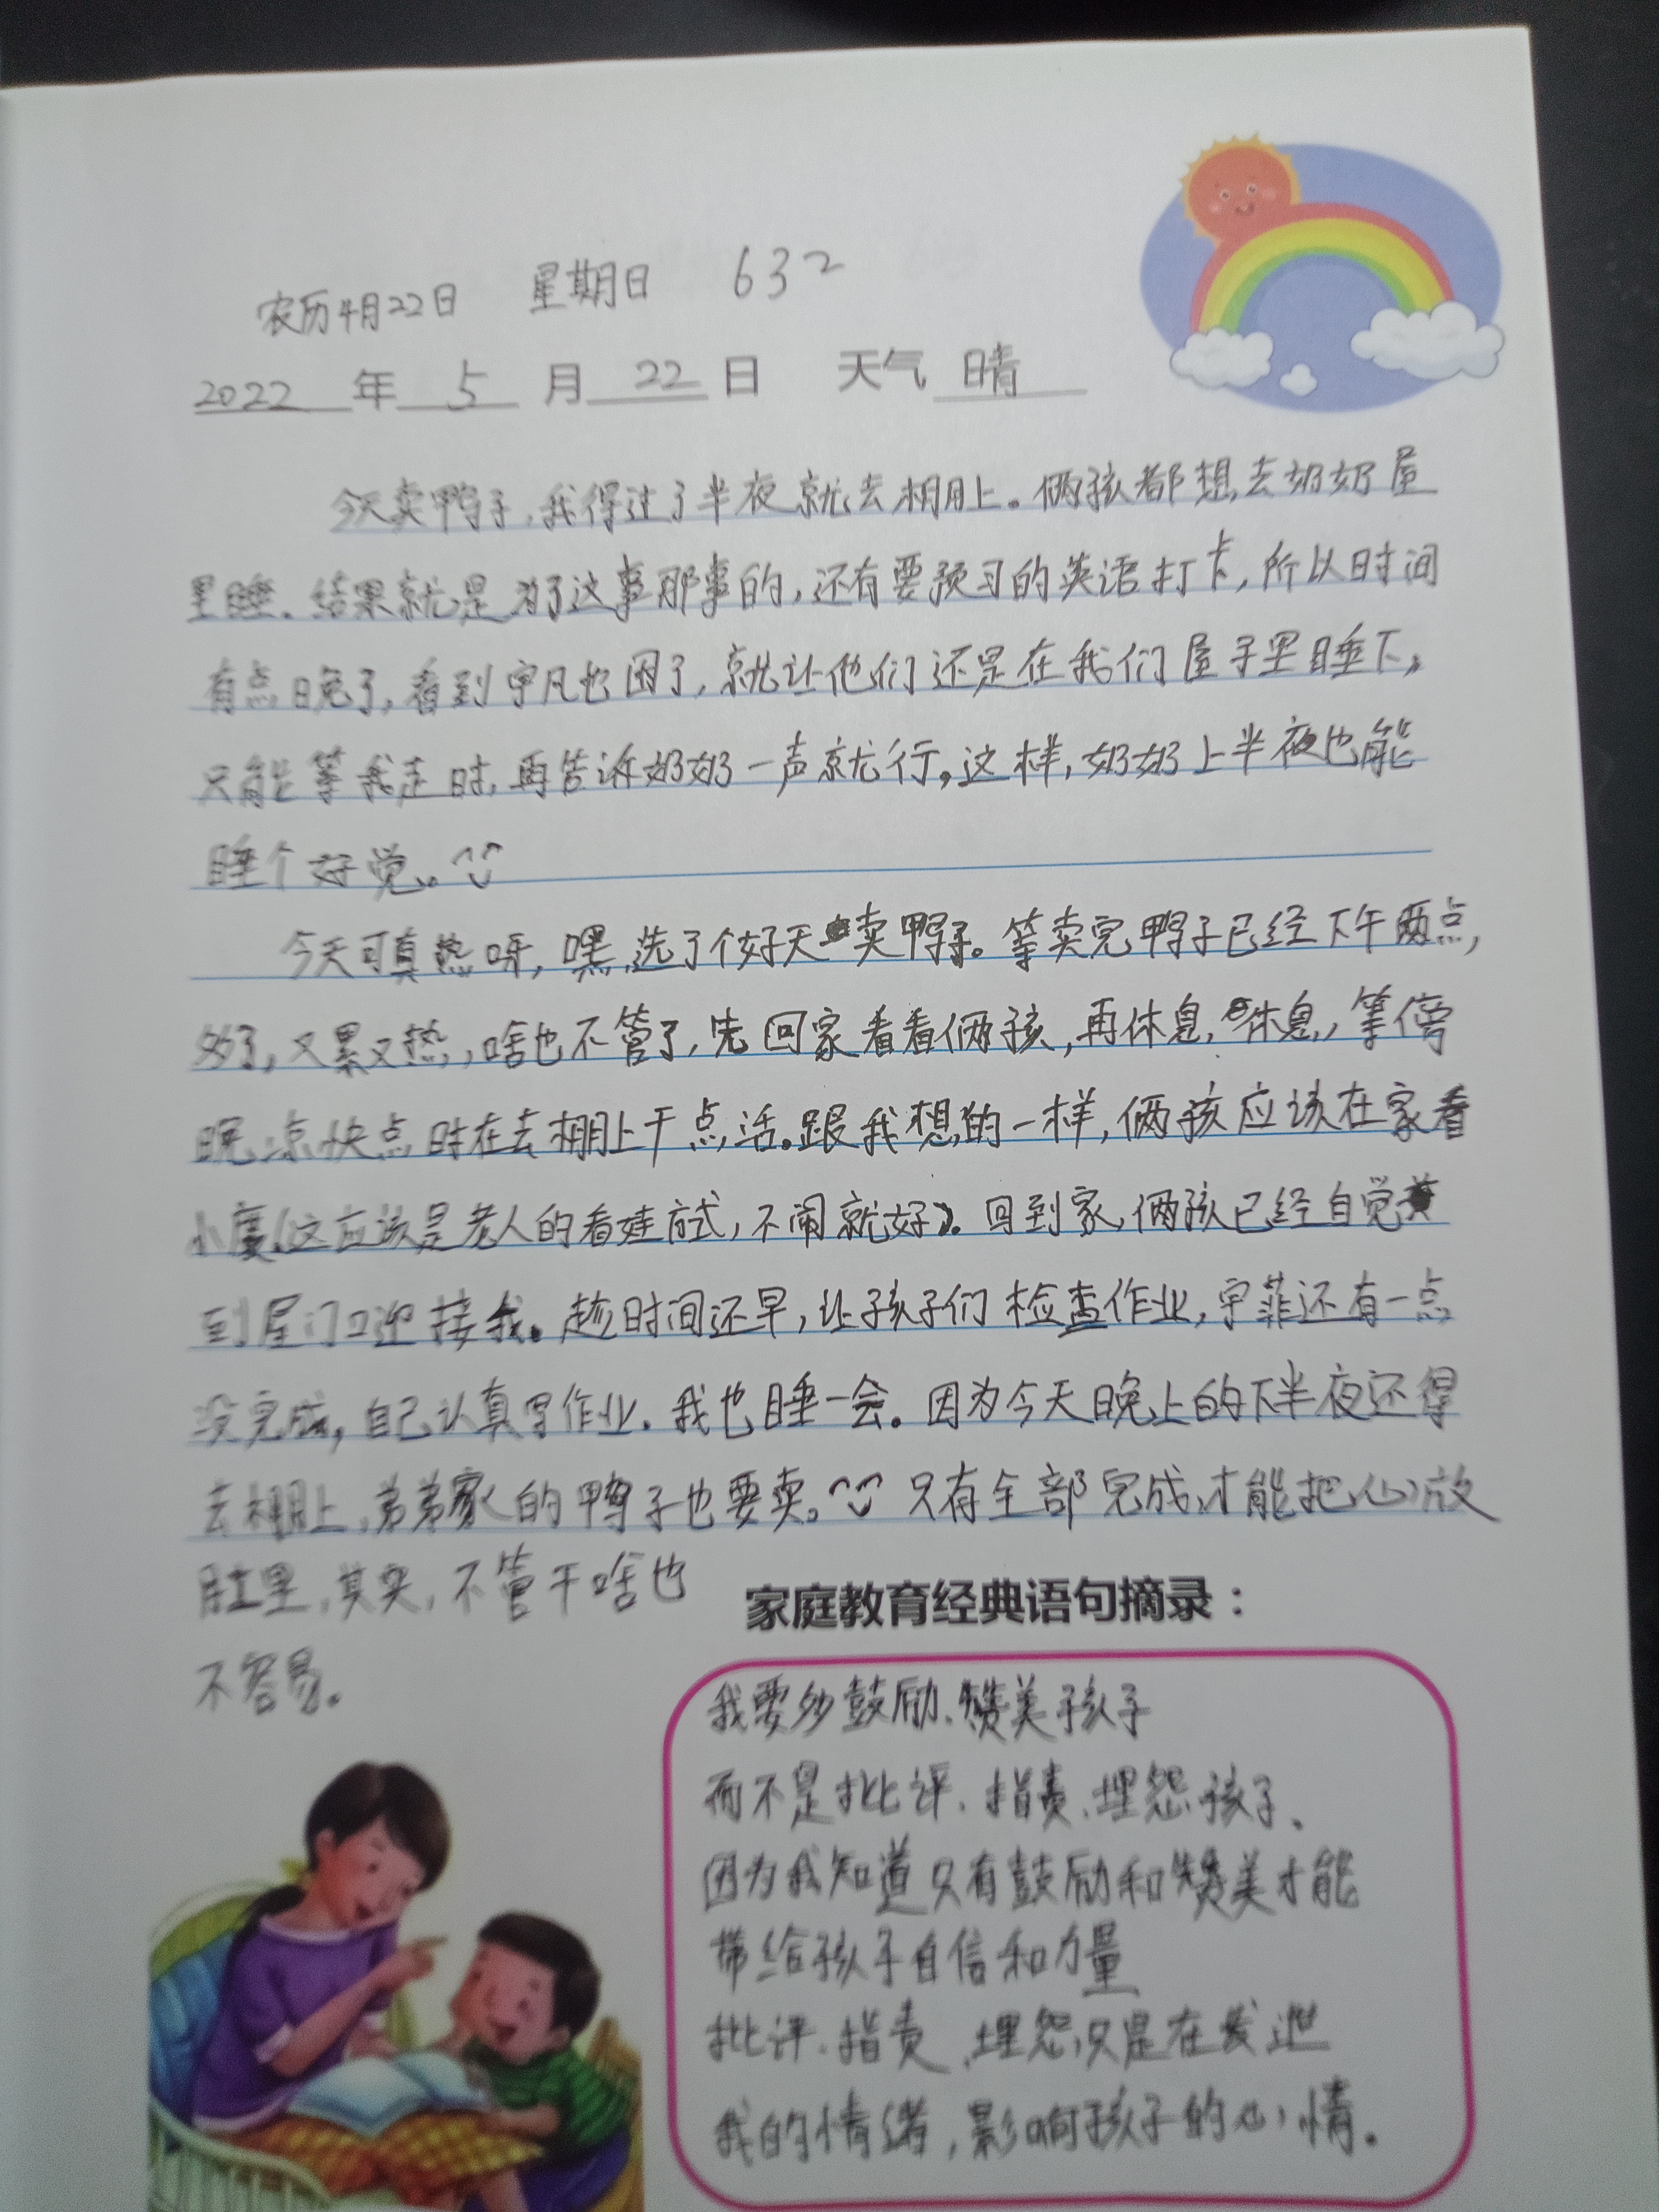 农历4月22日 星期日 632
2022 年 5 月 22 日 天气 晴
今天卖鸭子,我得过了半夜就去棚上。俩孩都想去奶奶屋
里睡。结果就是为了这事那事的,还有要预习的英语打卡,所以时间
有点晚了,看到宇凡也困了,就让他们还是在我们屋子里睡下,
只能等我走时,再告诉奶奶一声就行。这样,奶奶上半夜也能
睡个好觉。
今天可真热呀,嘿,选了个好天卖鸭子。等卖完鸭子已经下午两点,
多了,又累又热,啥也不管了,先回家看看俩孩,再休息,休息,等傍
晚凉快点时在去棚上干点活。跟我想的一样,俩孩应该在家看
小度(这应该是老人的看娃方式,不闹就好)。回到家,俩孩已经自觉
到屋门口迎接我。趁时间还早,让孩子们检查作业,宇菲还有一点
没完成,自己认真写作业。我也睡一会。因为今天晚上的下半夜还得
去棚上,弟弟家的鸭子也要卖。只有全部完成,才能把心放
肚里,其实,不管干啥也
不容易。
家庭教育经典语句摘录:
我要多鼓励、赞美孩子
而不是批评、指责、埋怨孩子、
因为我知道只有鼓励和赞美才能
带给孩子自信和力量
批评、指责、埋怨只是在发泄
我的情绪,影响孩子的心情。